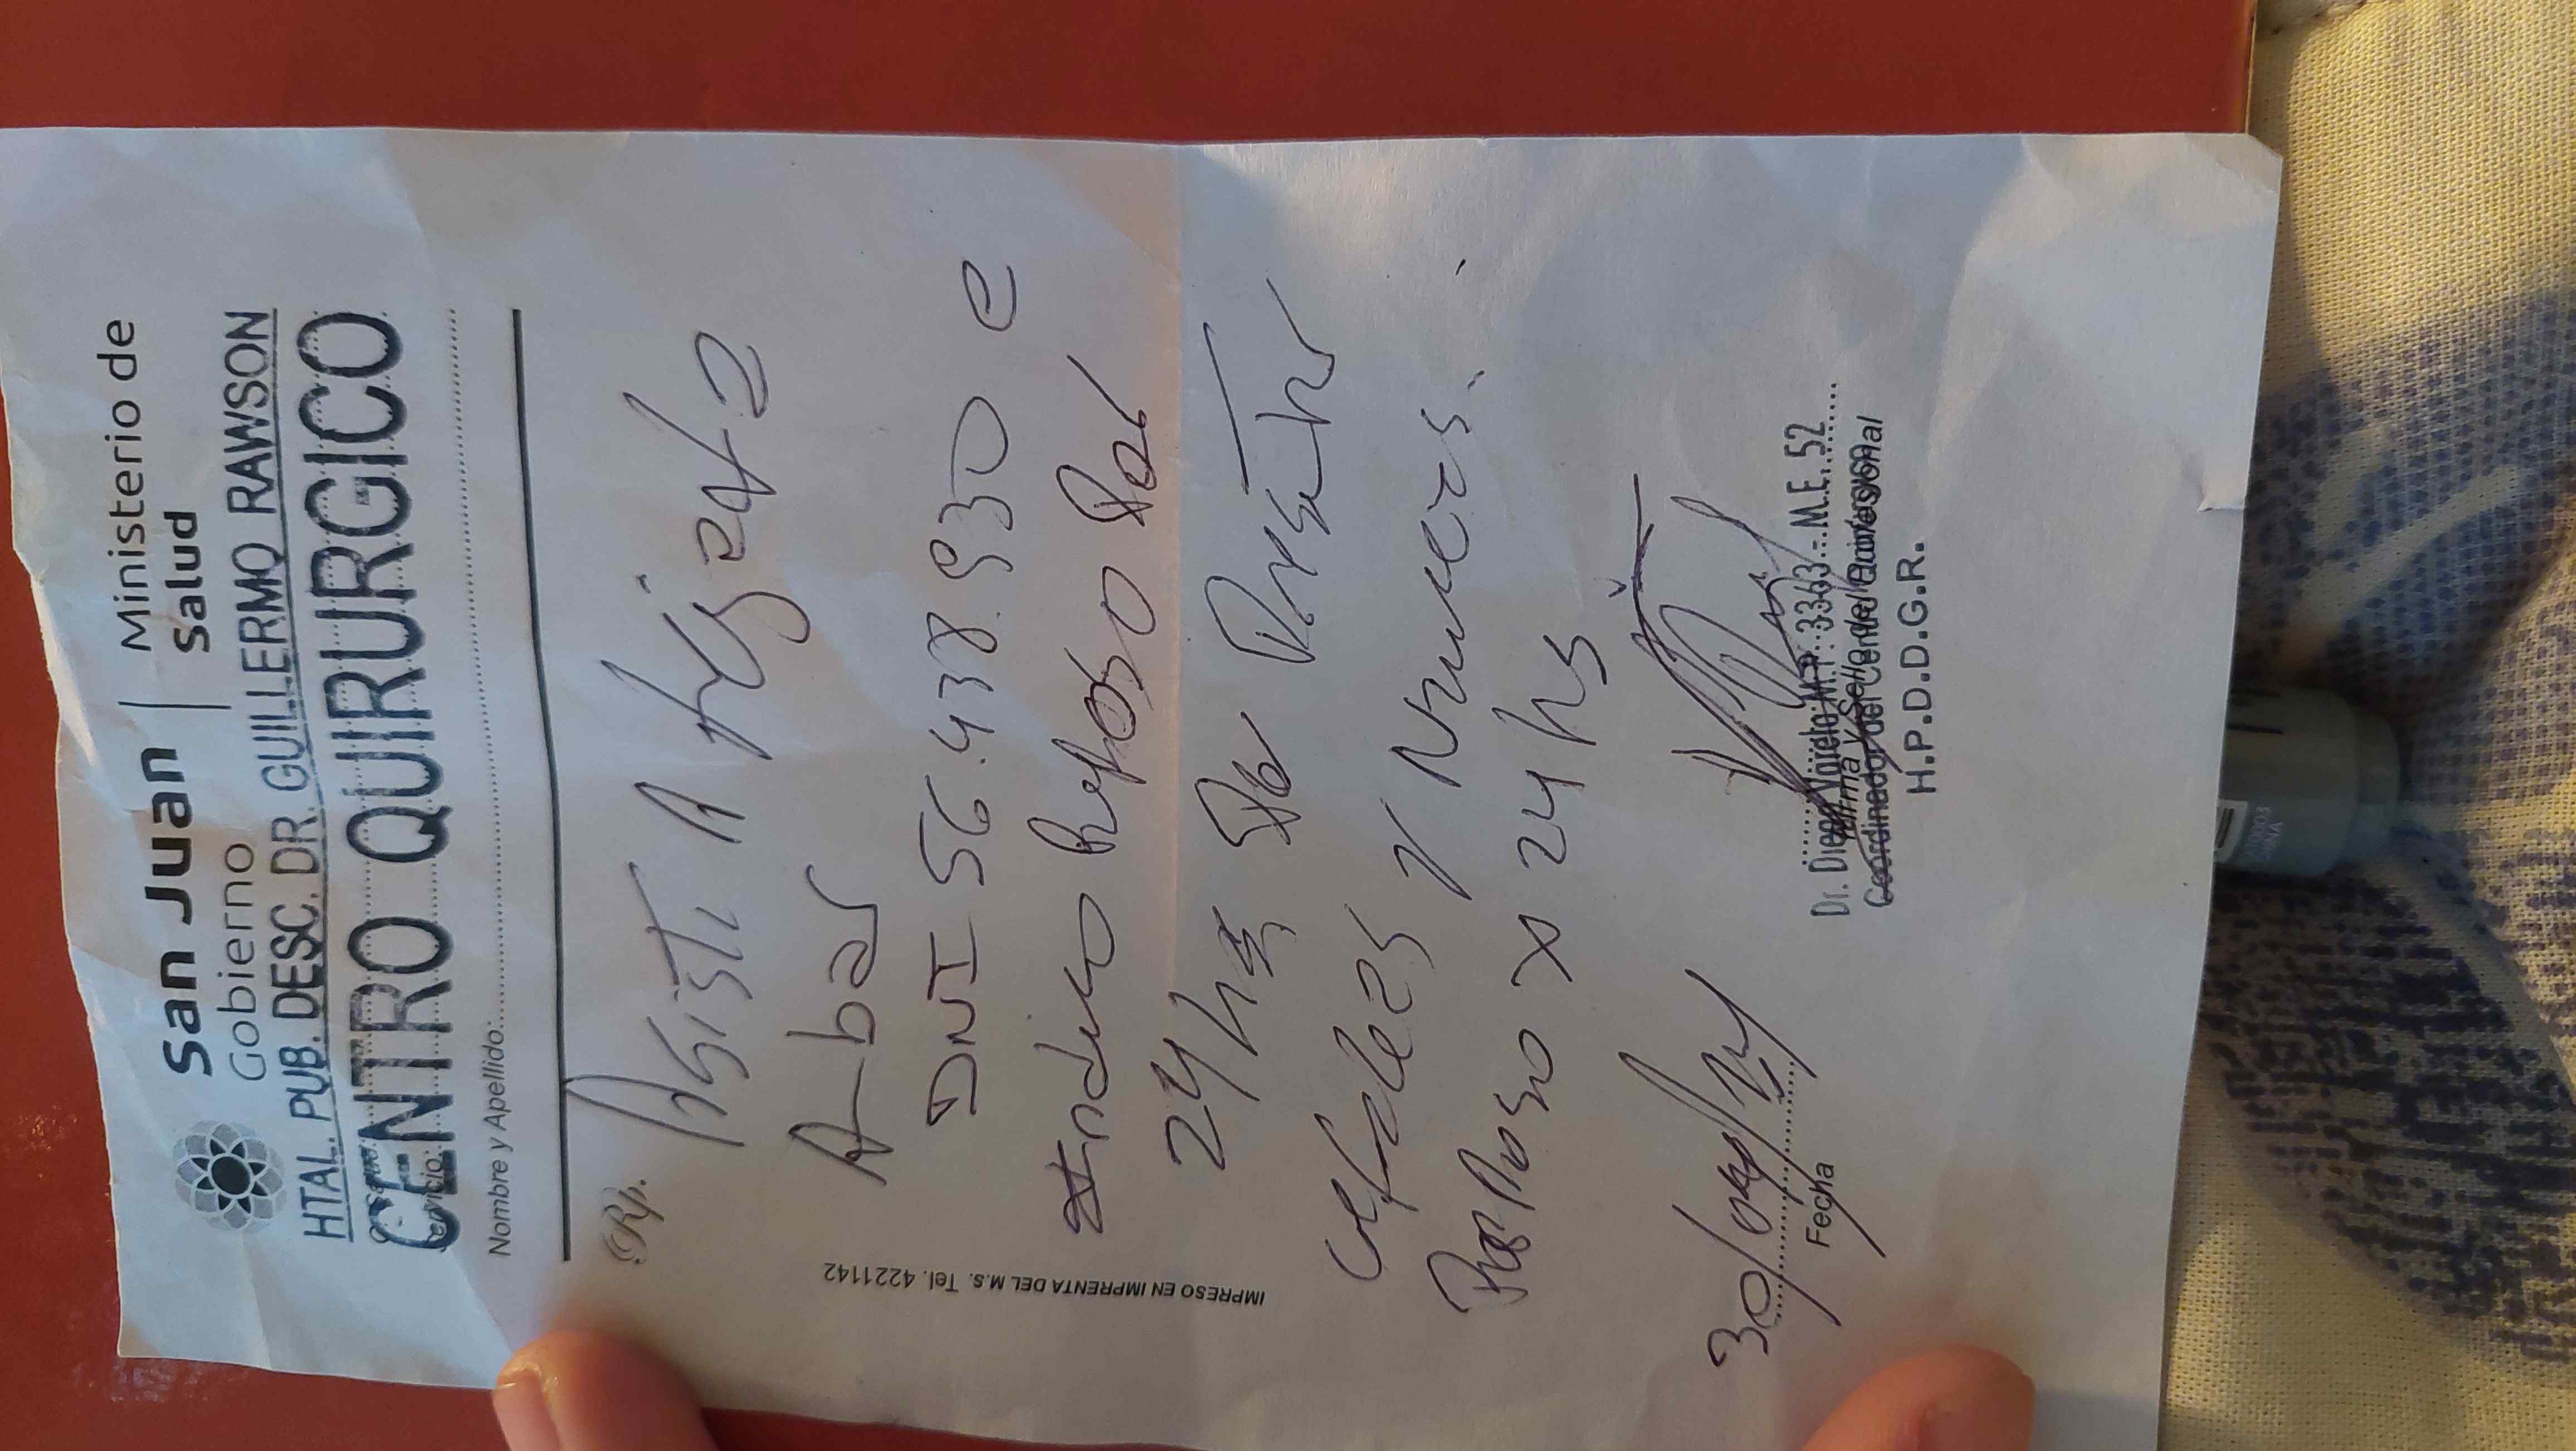 San Juan
Gobierno
Ministerio de
Salud
HTAL. PUB. DESC. DR. GUILLERMO RAWSON
CENTRO QUIRURGICO
Servicio:
Nombre y Apellido:
Rp.
Asistí A
Ambar
DNI 56.438.930 e
Indico Reposo Por
24 hs Por Presentar
cefaleas y Nauseas.
Reposo x 24 hs
30/
Fecha
Dr. Diego Varela M.P. 3363 - M.E. 52
Firma y Sello del Profesional
Coordinador del Centro Quirurgico
H.P.D.D.G.R.
IMPRESO EN IMPRENTA DEL M.S. Tel. 4221142